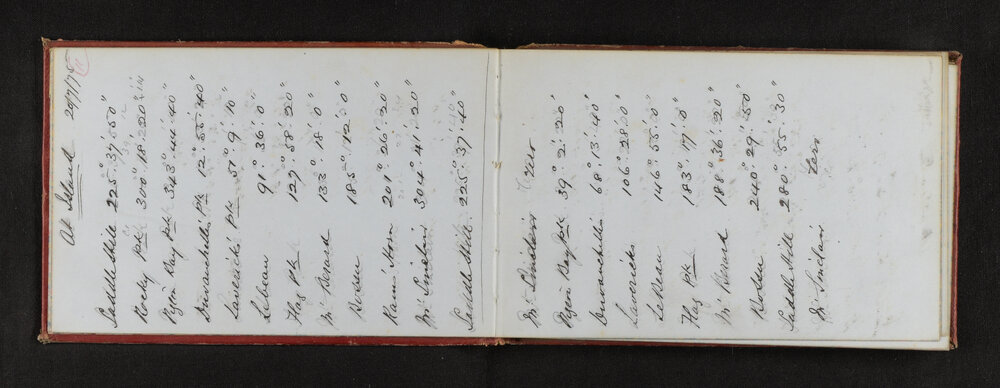 At Island 29/7/75
Saddle Hill 225° 37' 50"
Rocky Pk 300° 18'
Pigeon Bay Pk 343° 44' 40"
Duvauchelles Pk 12° 55' 40"
Laverick's Pk 51° 9' 10"
91° 36' 0"
Flag Pk 127° 58' 20"
Mt Berard 133° 18' 0"
185° 12' 0"
201° 26' 20"
Mt Sinclair 304° 41' 20"
Saddle Hill 225° 37' 40"
Mt Sinclair Zero
Pigeon Bay Pk 39° 2' 20"
Duvauchelles 68° 13' 40"
Lavericks 106° 28' 0"
146° 55' 0"
Flag Pk 183° 17' 0"
Mt Berard 188° 36' 20"
240° 29' 50"
Saddle Hill 280° 55' 30"
Mt Sinclair Zero